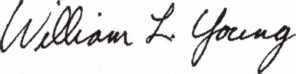 William L. Young